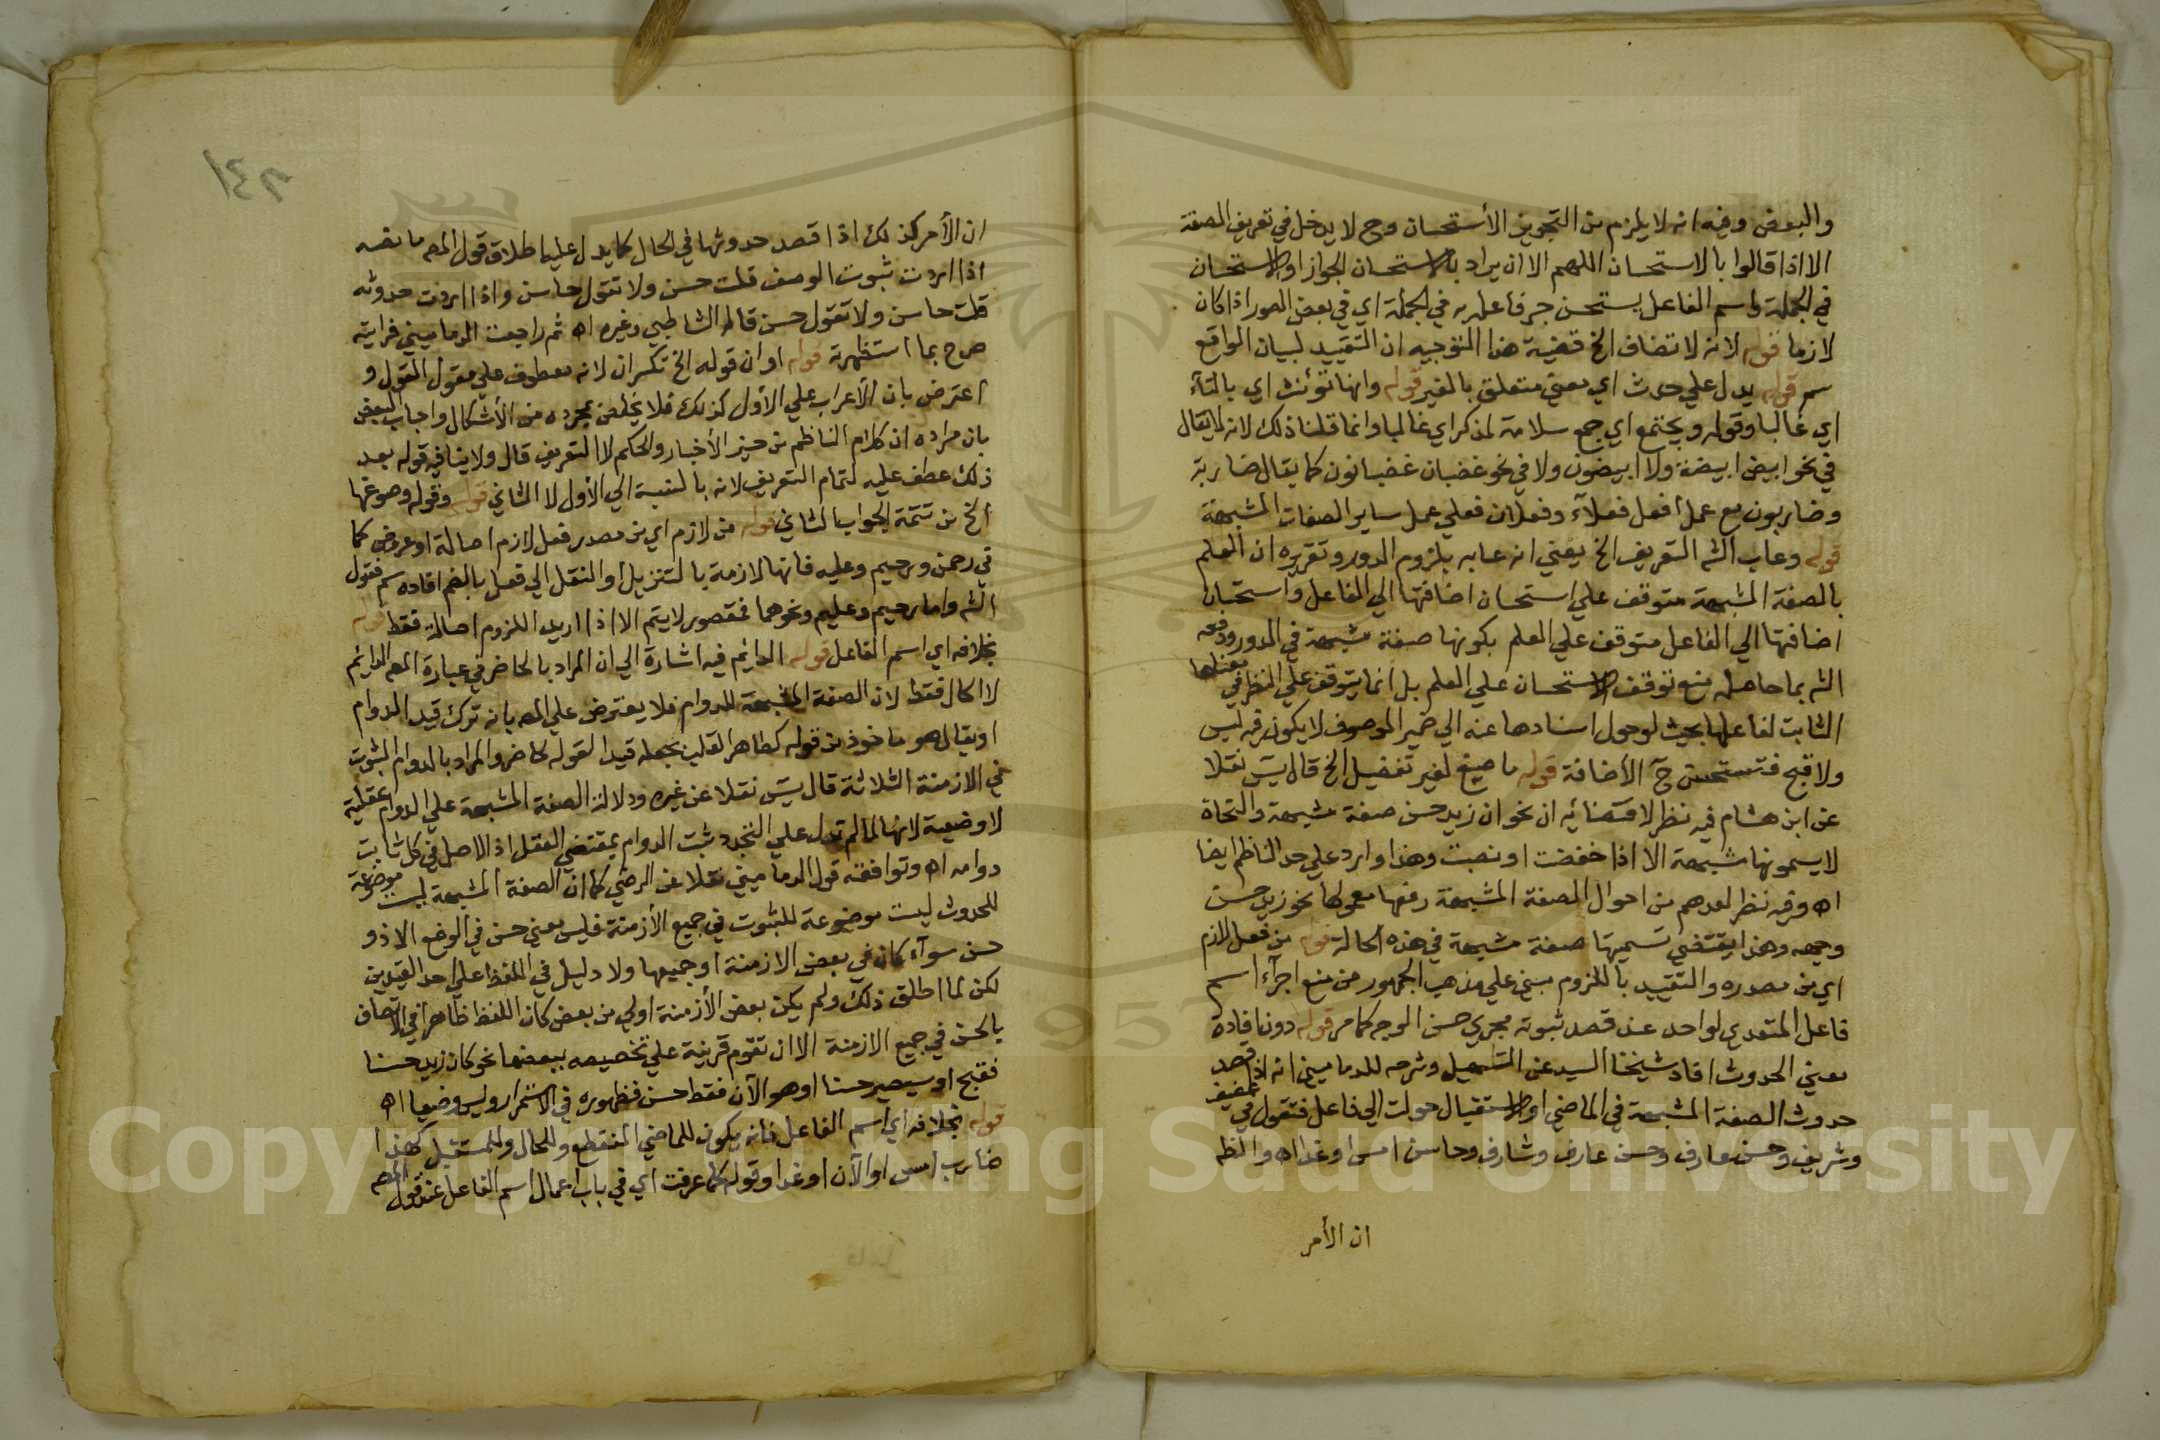 والبعض وفيه انه لا يلزم من التجويز الأستحسان وح لا يدخل في تعريف الصفة
الا اذا قالوا بالاستحسان اللهم الا ان يراد بالاستحسان الجواز او الاستحسان
في الجملة واسم الفاعل يستحسن جر فاعله به في الجملة اي في بعض الصور اذا كان
لازما قوله لانه لا تضاف الخ قضية هذا التوجيه ان التقييد لبيان الواقع
سم قوله يدل علي حدث اي معني متعلق بالغير قوله وانها تؤنث اي بالتآء
اي غالبا وقوله ويجتمع اي جمع سلامة لمذكر اي غالبا وانما قلنا ذلك لانه لا يقال
في نحو ابيض ابيضة ولا ابيضون ولا في نحو غضبان غضبانون كما يقال ضاربة
وضاربون مع عمل أفعل فعلآء وفعلان فعلي عمل ساير الصفات المشبهة
قوله وعاب الش التعريف الخ يعني انه عابه بلزوم الدور وتقريره ان العلم
بالصفة المشبهة متوقف علي استحسان اضافتها الي الفاعل واستحسان
اضافتها الي الفاعل متوقف علي العلم بكونها صفة مشبهة في الدور ودفعه
الش بما حاصله منع توقف الاستحسان علي العلم بل انما يتوقف علي النظر في معناها
الثابت لفاعلها بحيث لو حول اسنادها عنه الي ضمير الموصوف لا يكون فيه لبس
ولا قبح فتستحسن ح الأضافة قوله ما صيغ لغير تفضيل الخ قال يس نقلا
عن ابن هشام فيه نظر لاقتضائه ان نحو ان زيد حسن صفة مشبهة والنحاة
لا يسمونها مشبهة الا اذا خفضت او نصبت وهذا وارد علي حد الناظم ايضا
اه وفيه نظر لعدهم من احوال الصفة المشبهة رفعها معمولها نحو زيد حسن
وجهه وهذا يقتضي تسميتها صفة مشبهة في هذه الحالة قوله من فعل لازم
اي من مصدره والتقييد باللزوم مبني علي مذهب الجمهور من منع اجرآء اسم
فاعل المتعدي لواحد عند قصد ثبوته مجري حسن الوجه كما مر قوله دون افادة
معني الحدوث افاد شيخنا السيد عن التسهيل وشرحه للدماميني انه اذا قصد
حدوث الصفة المشبهة في الماضي او الاستقبال حولت الي فاعل فتقول في عفيف
وشريف وحسن عارف وحسن عارف وشارف وحاسن امس او غدا اه والظ
ان الأمر
١٤٢
ان الأمر كذلك اذا قصد حدوثها في الحال كما يدل عليه اطلاق قول المص ما نصه
اذا اردت ثبوت الوصف قلت حسن ولا تقول حاسن واذا اردت حدوثه
قلت حاسن ولا تقول حسن قاله الشاطبي وغيره اه ثم راجعت الدماميني فرايته
صرح بما استظهرته قوله او ان قوله الخ تكسر ان لانه معطوف علي مقول القول و
اعترض بان الأعراب علي الأول كذلك فلا يخلص بمجرده من الأشكال واجاب البعض
بان مراده ان كلام الناظم من حيز الأخبار والحكم لا التعريف قال ولا ينافيه قوله بعد
ذلك عطف عليه لتمام التعريف لانه بالنسبة الي الأول لا الثاني قوله وقوله وصوغها
الخ من تتمة الجواب الثاني قوله من لازم اي من مصدر فعل لازم اصالة او عروض كما
في رحمن ورحيم وعليم فانها لازمة بالتنزيل أو النقل الي فعل بالضم افاده سم فقول
الش واما رحيم وعليم ونحوهما فمقصور لا يتم الا اذا اريد اللزوم اصالة فقط قوله
بخلافه اي اسم الفاعل قوله الدايم فيه اشارة الي ان المراد بالحاضر في عبارة المص الدايم
لا الحال فقط لان الصفة المشبهة للدوام فلا يعترض علي المص بانه ترك قيد الدوام
او يقال هو ماخوذ من قوله كطاهر القلب بجعله قيدا لقوله لحاضر والمراد بالدوام الثبوت
في الازمنة الثلاثة قال يس نقلا عن غيره ودلالة الصفة المشبهة علي الدوام عقلية
لا وضعية لانها لما لم تدل علي التجدد ثبت الدوام بمقتضي العقل اذ الاصل في كل ثابت
دوامه اه وتوافقه قول الدماميني نقلا عن الرضي كما ان الصفة المشبهة ليست موضوعة
للحدوث ليست موضوعة للثبوت في جميع الأزمنة فليس معني حسن في الوضع الا ذو
حسن سوآء كان في بعض الازمنة او جميعها ولا دليل في اللفظ علي احد القيدين
لكن لما اطلق ذلك ولم يكن بعض الأزمنة اولي من بعض كان اللفظ ظاهرا في الاتصاف
بالحسن في جميع الازمنة الا ان تقوم قرينة علي تخصيصه ببعضها نحو كان زيد حسنا
فقبح او سيصير حسنا او هو الآن فقط حسن فظهوره في الاستمرار وليس وضعيا اه
قوله بخلافه اي اسم الفاعل فانه يكون للماضي المنقطع وللحال وللمستقبل كهذا
ضارب امس او الآن او غدا وقوله كما عرفت اي في باب اعمال اسم الفاعل عند قول المص